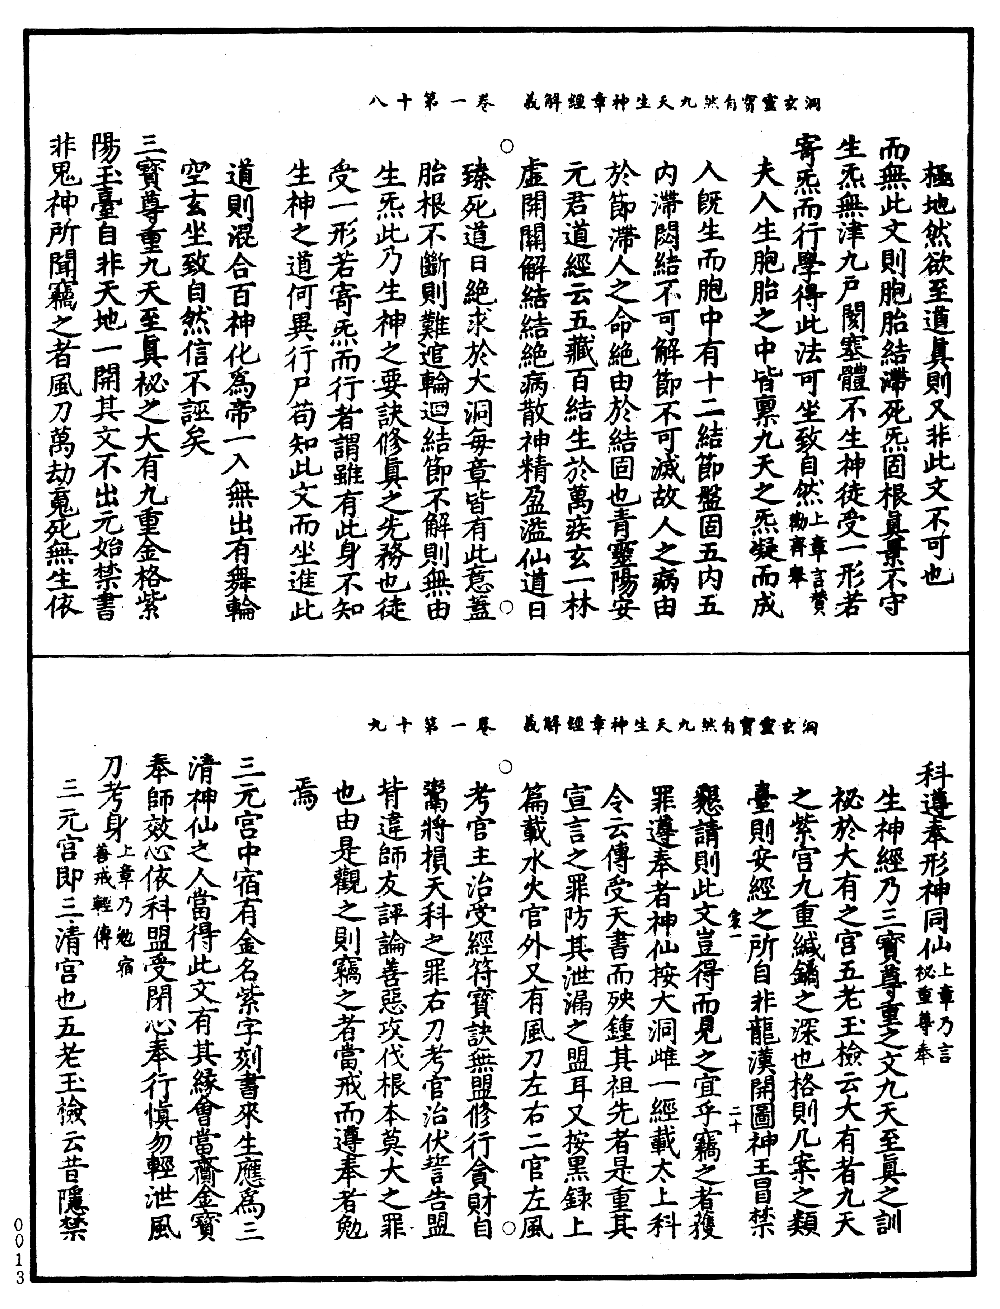 洞玄靈寶自然九天生神章經解義　卷一第十八
極地然欲至道眞則又非此文不可也
而無此文則胞胎結滯死炁固根眞景不守
生炁無津九戶閡塞體不生神徒受一形若
寄炁而行學得此法可坐致自然上章言贊勸齊舉
夫人生胞胎之中皆稟九天之炁凝而成
人旣生而胞中有十二結節盤固五内五
内滯悶結不可解節不可滅故人之病由
於節滯人之命絶由於結固也青靈陽安
元君道經云五藏百結生於萬疾玄一林
虛開關解結結絶病散神精盈溢仙道日
臻死道日絶求於大洞每章皆有此意蓋
胎根不斷則難逭輪迴結節不解則無由
生炁此乃生神之要訣修眞之先務也徒
受一形若寄炁而行者謂雖有此身不知
生神之道何異行尸苟知此文而坐進此
道則混合百神化爲帝一入無出有舞輪
空玄坐致自然信不誣矣
三寶尊重九天至眞祕之大有九重金格紫
陽玉臺自非天地一開其文不出元始禁書
非鬼神所聞竊之者風刀萬劫䰟死無生依
洞玄靈寶自然九天生神章經解義　卷一第十九
科遵奉形神同仙上章乃言祕重尊奉
生神經乃三寶尊重之文九天至眞之訓
祕於大有之宮五老玉檢云大有者九天
之紫宮九重緘鐍之深也格則几案之類
臺則安經之所自非龍漢開圖神王冒禁
食一　二十
懇請則此文豈得而見之宜乎竊之者獲
罪遵奉者神仙按大洞雌一經載太上科
令云傳受天書而殃鍾其祖先者是重其
宣言之罪防其泄漏之盟耳又按黑錄上
篇載水火官外又有風刀左右二官左風
考官主治受經符寶訣無盟修行貪財自
鬻將損天科之罪右刀考官治伏誓告盟
背違師友評論善惡攻伐根本莫大之罪
也由是觀之則竊之者當戒而遵奉者勉
焉
三元宮中宿有金名紫字刻書來生應爲三
清神仙之人當得此文有其緣會當齎金寶
奉師效心依科盟受閉心奉行愼勿輕泄風
刀考身上章乃勉宿善戒輕傳
三元宮即三清宮也五老玉檢云昔隱禁
0013